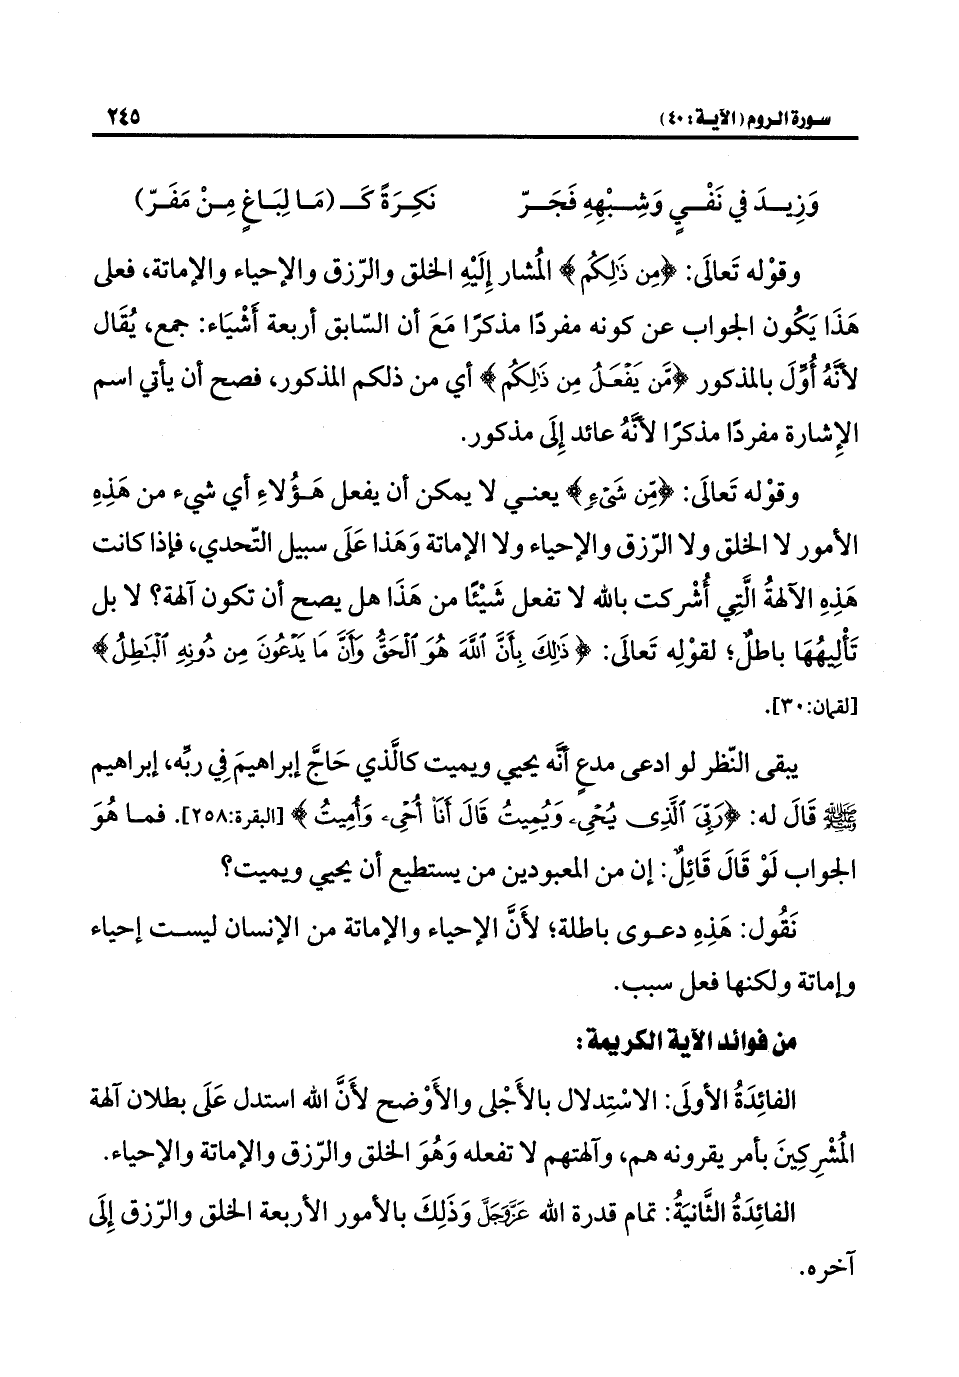 سورة الروم (الآية: ٤٠) ٢٤٥
وَزِيـدَ فِي نَفْـيٍ وَشِـبْهِهِ فَجَـرّ نَكِـرَةً كَــ (مَـا لِبَـاغٍ مِـنْ مَفَـرّ)
وقوْله تَعالَى: ﴿مِن ذَٰلِكُم﴾ المُشار إِلَيْهِ الخلق والرّزق والإحياء والإماتة، فعلى
هَذَا يَكُون الجواب عن كونه مفردًا مذكرًا مَعَ أن السّابق أربعة أَشْيَاء: جمع، يُقَال
لأنَّهُ أُوِّلَ بالمذكور ﴿مَّن يَفْعَلُ مِن ذَٰلِكُم﴾ أي من ذلكم المذكور، فصح أن يأتي اسم
الإِشارة مفردًا مذكرًا لأنَّهُ عائد إِلَى مذكور.
وقوْله تَعالَى: ﴿مِّن شَىْءٍ﴾ يعنـي لا يمكن أن يفعل هَـؤُلاءِ أي شيء من هَذِهِ
الأمور لا الخلق ولا الرّزق والإحياء ولا الإماتة وَهَذا عَلَى سبيل التّحدي، فإذا كانت
هَذِهِ الآلهةُ الَّتِي أُشْركت بالله لا تفعل شَيْئًا من هَذَا هل يصح أن تكون آلهة؟ لا بل
تَأْلِيهُهَا باطلٌ؛ لقوْلِه تَعالَى: ﴿ذَٰلِكَ بِأَنَّ ٱللَّهَ هُوَ ٱلْحَقُّ وَأَنَّ مَا يَدْعُونَ مِن دُونِهِ ٱلْبَٰطِلُ﴾
[لقمان: ٣٠].
يبقى النّظر لو ادعى مدعٍ أنَّه يحيي ويميت كالَّذي حَاجَّ إبراهيمَ فِي ربِّه، إبراهيم
ﷺ قَالَ له: ﴿رَبِّىَ ٱلَّذِى يُحْىِۦ وَيُمِيتُ قَالَ أَنَا۠ أُحْىِۦ وَأُمِيتُ﴾ [البقرة: ٢٥٨]. فمـا هُوَ
الجواب لَوْ قَالَ قَائِلٌ: إن من المعبودين من يستطيع أن يحيي ويميت؟
نَقُول: هَذِهِ دعـوى باطلة؛ لأَنَّ الإحياء والإماتة من الإنسان ليسـت إحياء
وإماتة ولكنها فعل سبب.
من فوائد الآية الكريمة:
الفائِدَةُ الأولَى: الاسْتِدلال بالأَجْلى والأَوْضح لأَنَّ الله استدل عَلَى بطلان آلهة
المُشْرِكِينَ بأمر يقرونه هم، وآلهتهم لا تفعله وَهُوَ الخلق والرّزق والإماتة والإحياء.
الفائِدَةُ الثَّانيَةُ: تمام قدرة الله عَزَّوَجَلَّ وَذَلِكَ بالأمور الأربعة الخلق والرّزق إِلَى
آخره.